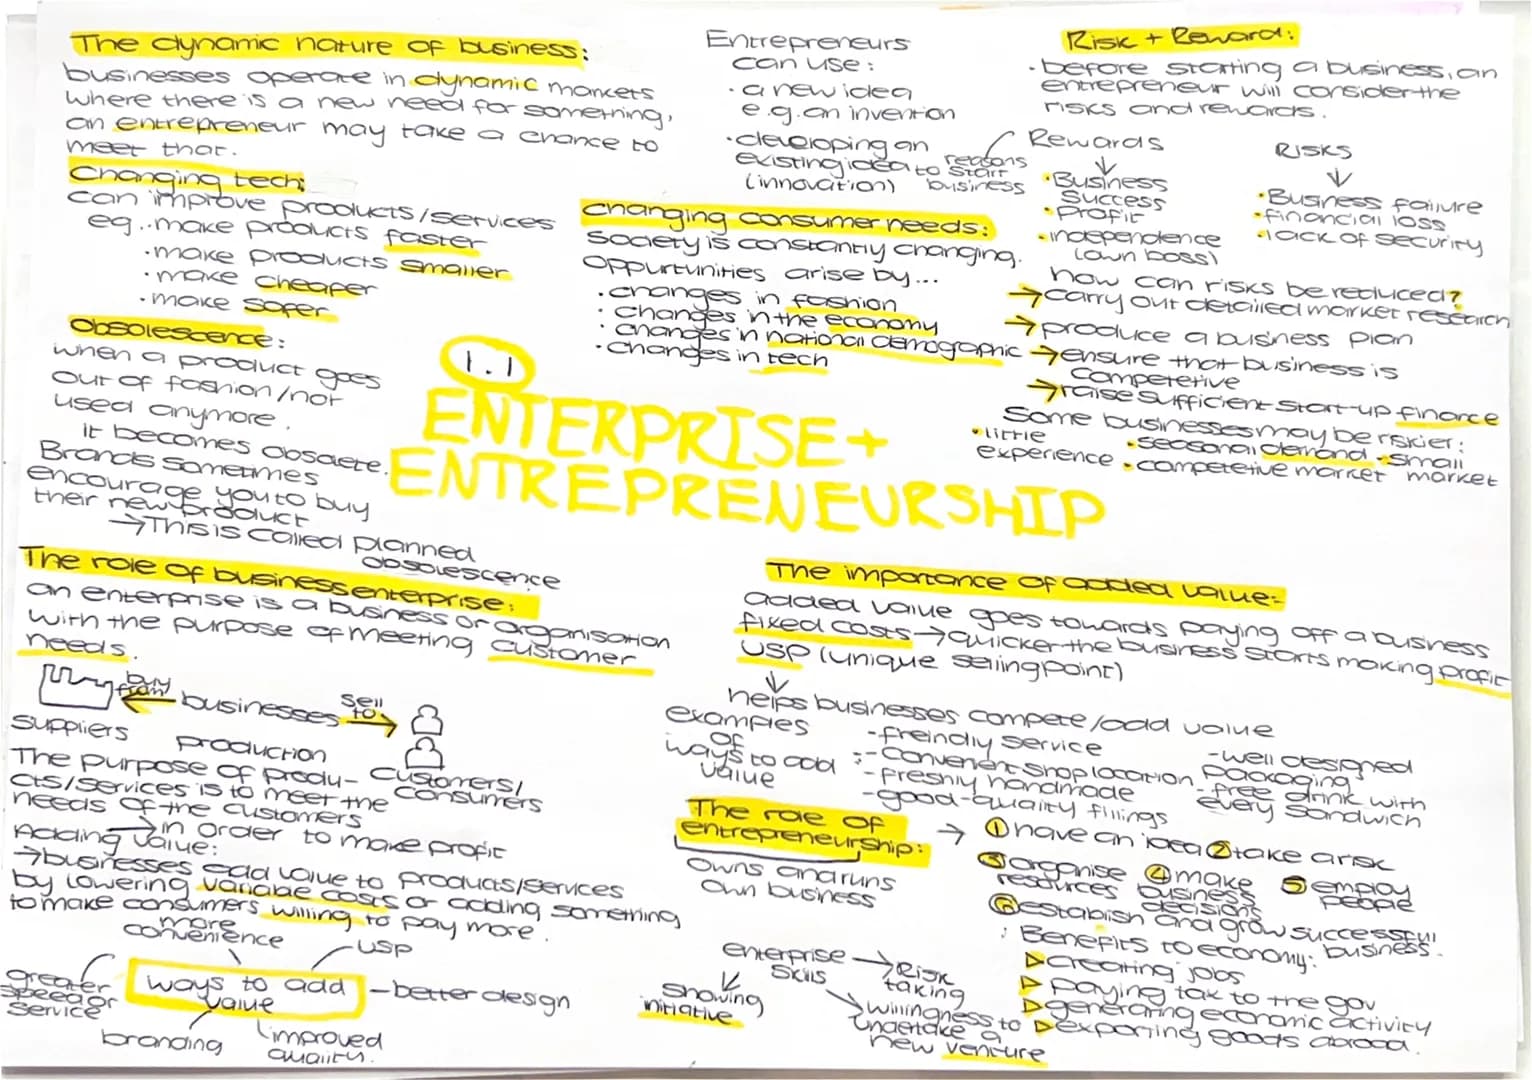 The dynamic nature of business:
businesses operate in dynamic markets
where there is a new need for something,
an entrepreneur may take a chance to
meet that.
Changing tech:
can improve products/services
eg. · make products faster
· make products smaller
· make cheaper
· make safer
Obsolescence:
when a product goes
out of fashion/not
used anymore.
it becomes obsolete.
Brands sometimes
encourage you to buy
their new product
→This is called planned
obsolescence
Entrepreneurs
can use:
· a new idea
e.g. an invention
· developing an
existing idea
(innovation)
changing consumer needs:
Society is constantly changing.
Oppurtunities arise by...
· changes in fashion
· changes in the economy
· changes in national demographic
· changes in tech
Risk + Reward:
· before starting a business, an
entrepreneur will consider the
risks and rewards.
reasons
to start
business
Rewards
↓
· Business
Success
· Profit
· independence
(own boss)
RISKS
↓
· Business failure
· financial loss
· lack of security
how can risks be reduced?
→carry out detailed market research
→produce a business plan
→ensure that business is
competetive
→raise sufficient start-up finance
Some businesses may be riskier:
· little
experience
· seasonal demand
· small
market
· competetive market
1.1
ENTERPRISE +
ENTREPRENEURSHIP
The role of business enterprise:
an enterprise is a business or organisation
with the purpose of meeting customer
needs.
buy
from
businesses
sell
to
suppliers
production
customers/
consumers
The purpose of produ-
cts/services is to meet the
needs of the customers
→in order to make profit
Adding value:
→businesses add value to products/services
by lowering variable costs or adding something
to make consumers willing to pay more.
more
convenience
USP
greater
speed of
service
ways to add
value
better design
branding
improved
quality.
The importance of added value:
added value goes towards paying off a business
fixed costs → quicker the business starts making profit
USP (unique selling point)
↓
helps businesses compete/add value
examples
of
ways to add
value
- freindly service
- convenient shop location
- freshly handmade
- good-quality fillings
- well designed
packaging
- free drink with
every sandwich
The role of
entrepreneurship:
owns and runs
own business
→ ① have an idea ② take a risk
③ organise
resources
④ make
business
decisions
⑤ employ
people
⑥ establish and grow successful
business.
Benefits to economy:
▷ creating jobs
▷ paying tax to the gov
▷ generating economic activity
▷ exporting goods abroad.
enterprise
skills
→ Risk
taking
showing
initiative
willingness to
undertake a
new venture